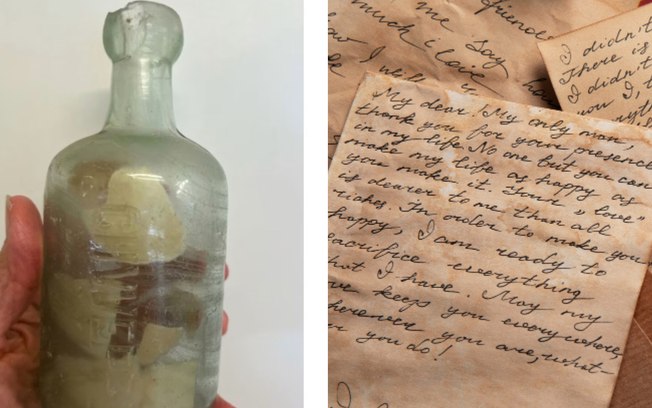 me say
friends
much i love
I will
I didn't
There is
I didn't
you I,
My dear! My only man,
thank you for your presence
in my life. No one but you can
make my life as happy as
you make it. Your "love"
is dearer to me than all
riches. In order to make you
happy, I am ready to
sacrifice everything
I have. May my
keep you everywhere,
wherever you are, what
you do!